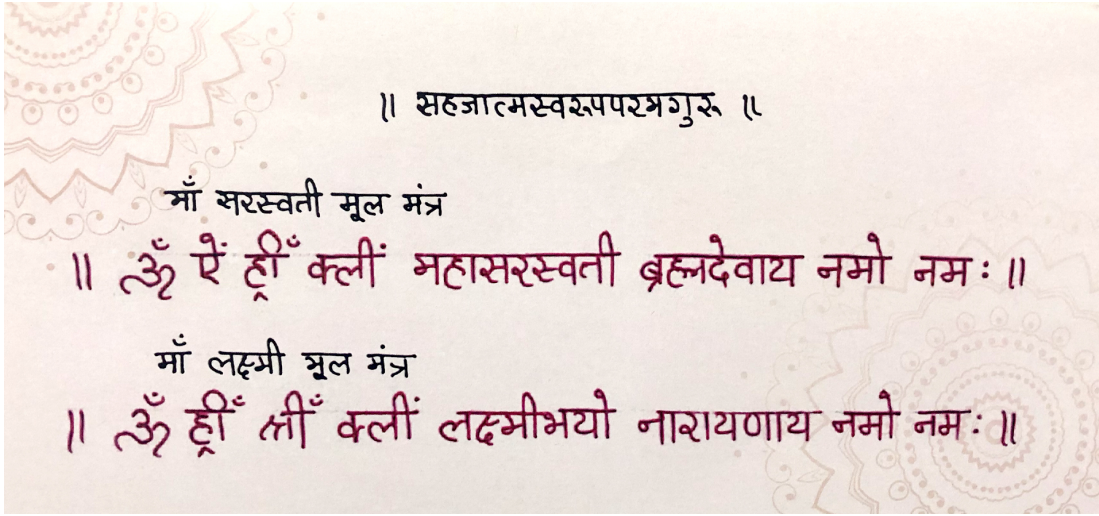 ॥ सहजात्मस्वरूपपरमगुरू ॥
माँ सरस्वती मूल मंत्र
॥ ॐ ऐं ह्रीँ क्लीं महासरस्वती ब्रह्मदेवाय नमो नमः ॥
माँ लक्ष्मी मूल मंत्र
॥ ॐ ह्रीँ श्रीँ क्लीं लक्ष्मीभयो नारायणाय नमो नमः ॥